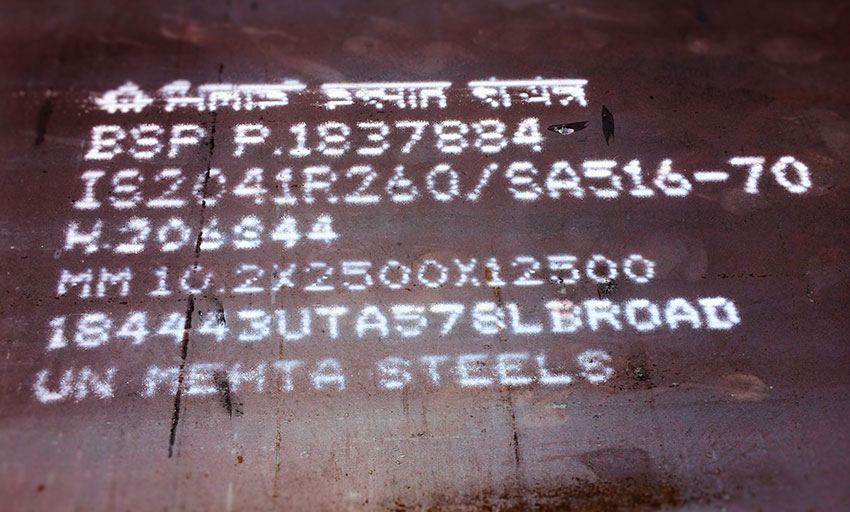 भिलाई इस्पात संयंत्र
BSP P.1837884
IS2041R260/SA516-70
H.206844
MM 10.2X2500X12500
184443UTA578LBROAD
UN MEHTA STEELS